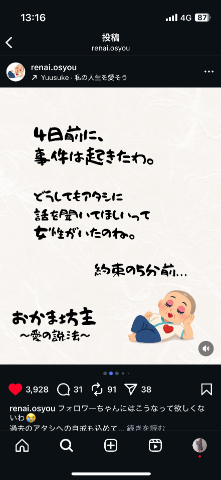 13:16
4G
87
投稿
renai.osyou
renai.osyou
Yuusuke · 私の人生を愛そう
4日前に、
事件は起きたわ。
どうしてもアタシに
話を聞いてほしいって
女性がいたのね。
約束の5分前...
おかま坊主
～愛の説法～
3,928
31
91
38
renai.osyou フォロワーちゃんにはこうなって欲しくな
いわ😭
過去のアタシへの自戒も込めて... 続きを読む